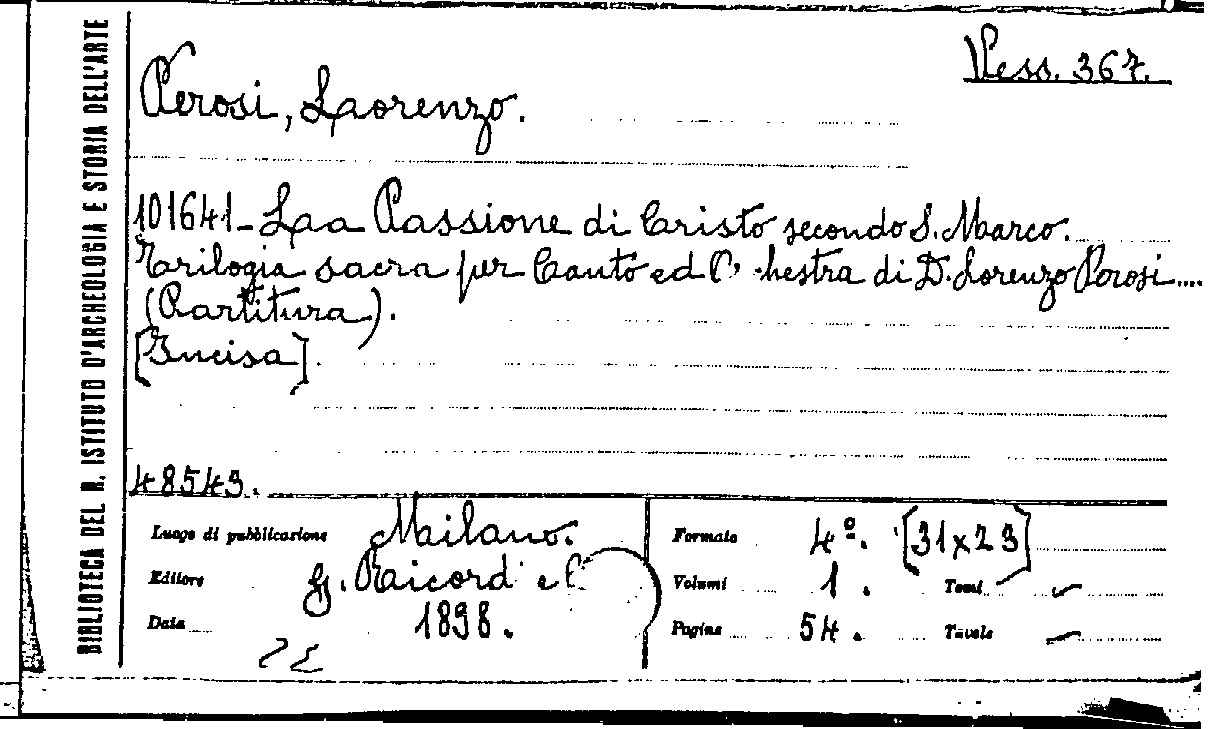 BIBLIOTECA DEL R. ISTITUTO D'ARCHEOLOGIA E STORIA DELL'ARTE
Vess. 367.
Perosi, Lorenzo.
101641 - La Passione di Cristo secondo S. Marco.
Trilogia sacra per Canto ed O hestra di D. Lorenzo Perosi....
(Partitura).
[Incisa].
48543.
Luogo di pubblicazione Milano.
Editore G. Ricordi e C
Data 1898.
Formato 4º. [31x23]
Volumi 1. Tomi –
Pagine 54. Tavole –